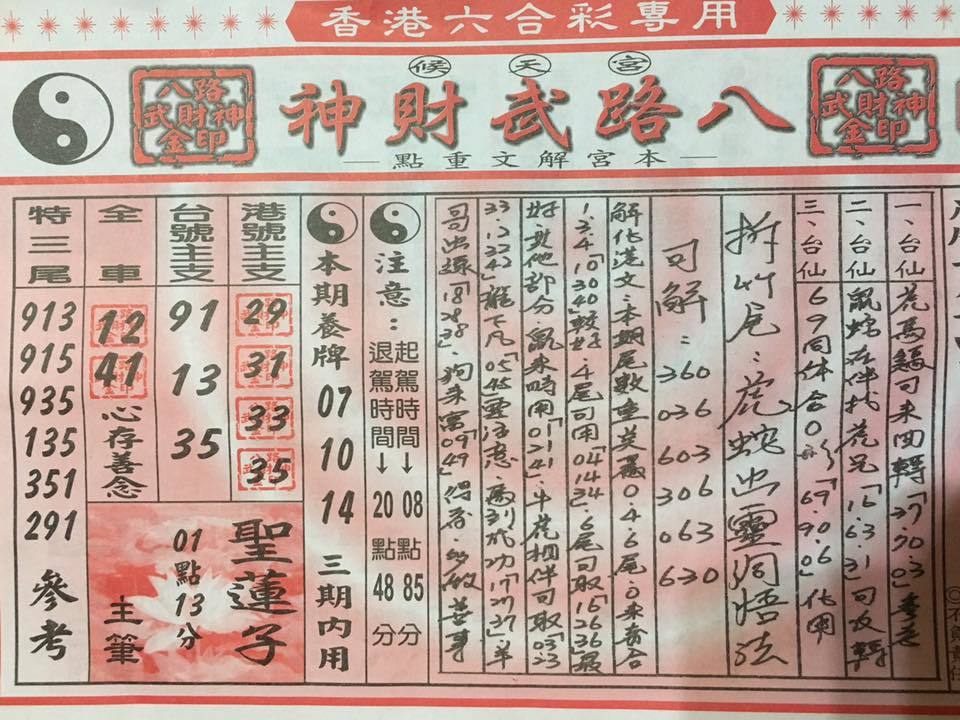 香港六合彩專用
候天宮
神財武路八
八路武財神金印
八路武財神金印
點重文解宮本
一、台仙 虎馬 可來回轉「37.70.3」
二、台仙 鼠蛇在伴找虎兄「16.63.31」可反轉
三、台仙 69同体合0 「69.90.06」化用
拆竹尾：虎蛇出靈洞悟法
可解：360 036 603 306 063 630
解化港文：本期尾數重 0.4.6尾.0來奇合
1.3.4「10.30.40」較好.4尾可用「04.14.34.6尾可取「16.26.36」最
好.其他部分 鼠來時用「01.21.41.牛虎相伴可取「03.23
33.」龍下凡「05.45」靈 成功「17.27.37」羊
哥出遠「18.28.38.狗來富「09.49」得
注意：
起駕時間→08點85分
退駕時間→20點48分
本期養牌 07 10 14 三期內用
港號主支
29
31
33
35
台號主支
91
13
35
全車
12
41
心存善念
聖蓮子
01點13分
主筆
特三尾
913
915
935
135
351
291
參考